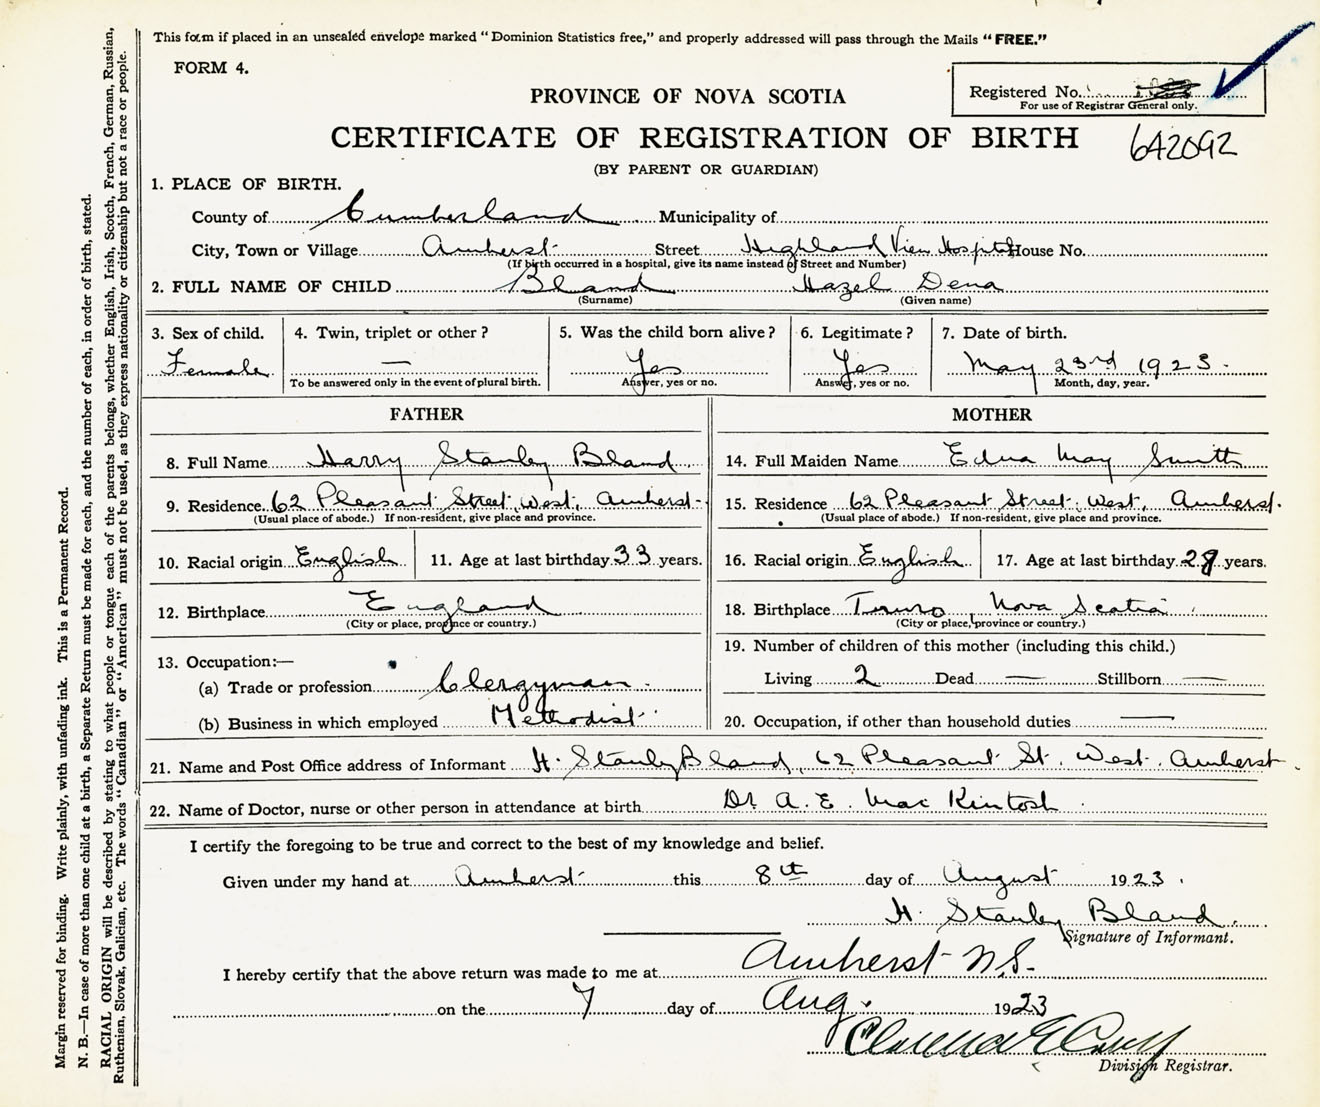 This form if placed in an unsealed envelope marked "Dominion Statistics free," and properly addressed will pass through the Mails "FREE."
FORM 4.
Registered No.
For use of Registrar General only.
PROVINCE OF NOVA SCOTIA
CERTIFICATE OF REGISTRATION OF BIRTH
642092
(BY PARENT OR GUARDIAN)
1. PLACE OF BIRTH.
County of Cumberland Municipality of
City, Town or Village Amherst Street Highland View Hospital House No.
(If birth occurred in a hospital, give its name instead of Street and Number)
2. FULL NAME OF CHILD Bland Hazel Dena
(Surname) (Given name)
3. Sex of child. 4. Twin, triplet or other? 5. Was the child born alive? 6. Legitimate? 7. Date of birth.
Female — Yes Yes May 23rd 1923.
To be answered only in the event of plural birth. Answer, yes or no. Answer, yes or no. Month, day, year.
FATHER MOTHER
8. Full Name Harry Stanley Bland 14. Full Maiden Name Edna May Smith
9. Residence 62 Pleasant Street, West, Amherst 15. Residence 62 Pleasant Street, West, Amherst.
(Usual place of abode.) If non-resident, give place and province. (Usual place of abode.) If non-resident, give place and province.
10. Racial origin English 11. Age at last birthday 33 years. 16. Racial origin English 17. Age at last birthday 28 years.
12. Birthplace England 18. Birthplace Truro, Nova Scotia
(City or place, province or country.) (City or place, province or country.)
19. Number of children of this mother (including this child.)
13. Occupation:—
(a) Trade or profession Clergyman Living 2 Dead — Stillborn —
(b) Business in which employed Methodist 20. Occupation, if other than household duties —
21. Name and Post Office address of Informant H. Stanley Bland, 62 Pleasant St. West. Amherst.
22. Name of Doctor, nurse or other person in attendance at birth Dr. A. E. MacKintosh
I certify the foregoing to be true and correct to the best of my knowledge and belief.
Given under my hand at Amherst this 8th day of August 1923.
H. Stanley Bland.
Signature of Informant.
I hereby certify that the above return was made to me at Amherst N.S.
on the 7 day of Aug. 1923
Division Registrar.
Margin reserved for binding. Write plainly, with unfading ink. This is a Permanent Record.
N. B.—In case of more than one child at a birth, a Separate Return must be made for each, and the number of each, in order of birth, stated.
RACIAL ORIGIN will be described by stating to what people or tongue each of the parents belongs, whether English, Irish, Scotch, French, German, Russian,
Ruthenian, Slovak, Galician, etc. The words "Canadian" or "American" must not be used, as they express nationality or citizenship but not a race or people.